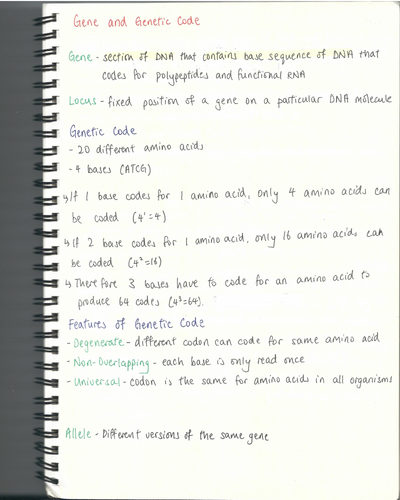 Gene and Genetic Code
Gene - section of DNA that contains base sequence of DNA that
codes for polypeptides and functional RNA
Locus - fixed position of a gene on a particular DNA molecule
Genetic Code
- 20 different amino acids
- 4 bases (ATCG)
↳ If 1 base codes for 1 amino acid, only 4 amino acids can
be coded (4¹=4)
↳ If 2 base codes for 1 amino acid, only 16 amino acids can
be coded (4²=16)
↳ Therefore 3 bases have to code for an amino acid to
produce 64 codes (4³=64).
Features of Genetic Code
- Degenerate - different codon can code for same amino acid
- Non-Overlapping - each base is only read once
- Universal - codon is the same for amino acids in all organisms
Allele - Different versions of the same gene